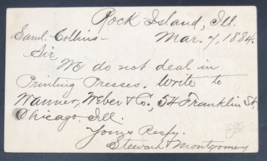 Rock Island, Ill.
Mar. 7, 1884.
Saml. Collins—
Sir,
We do not deal in
Printing Presses. Write to
Warner, Weber & Co., 54 Franklin St.
Chicago, Ill.
Yours Resfy.
Stewart & Montgomery